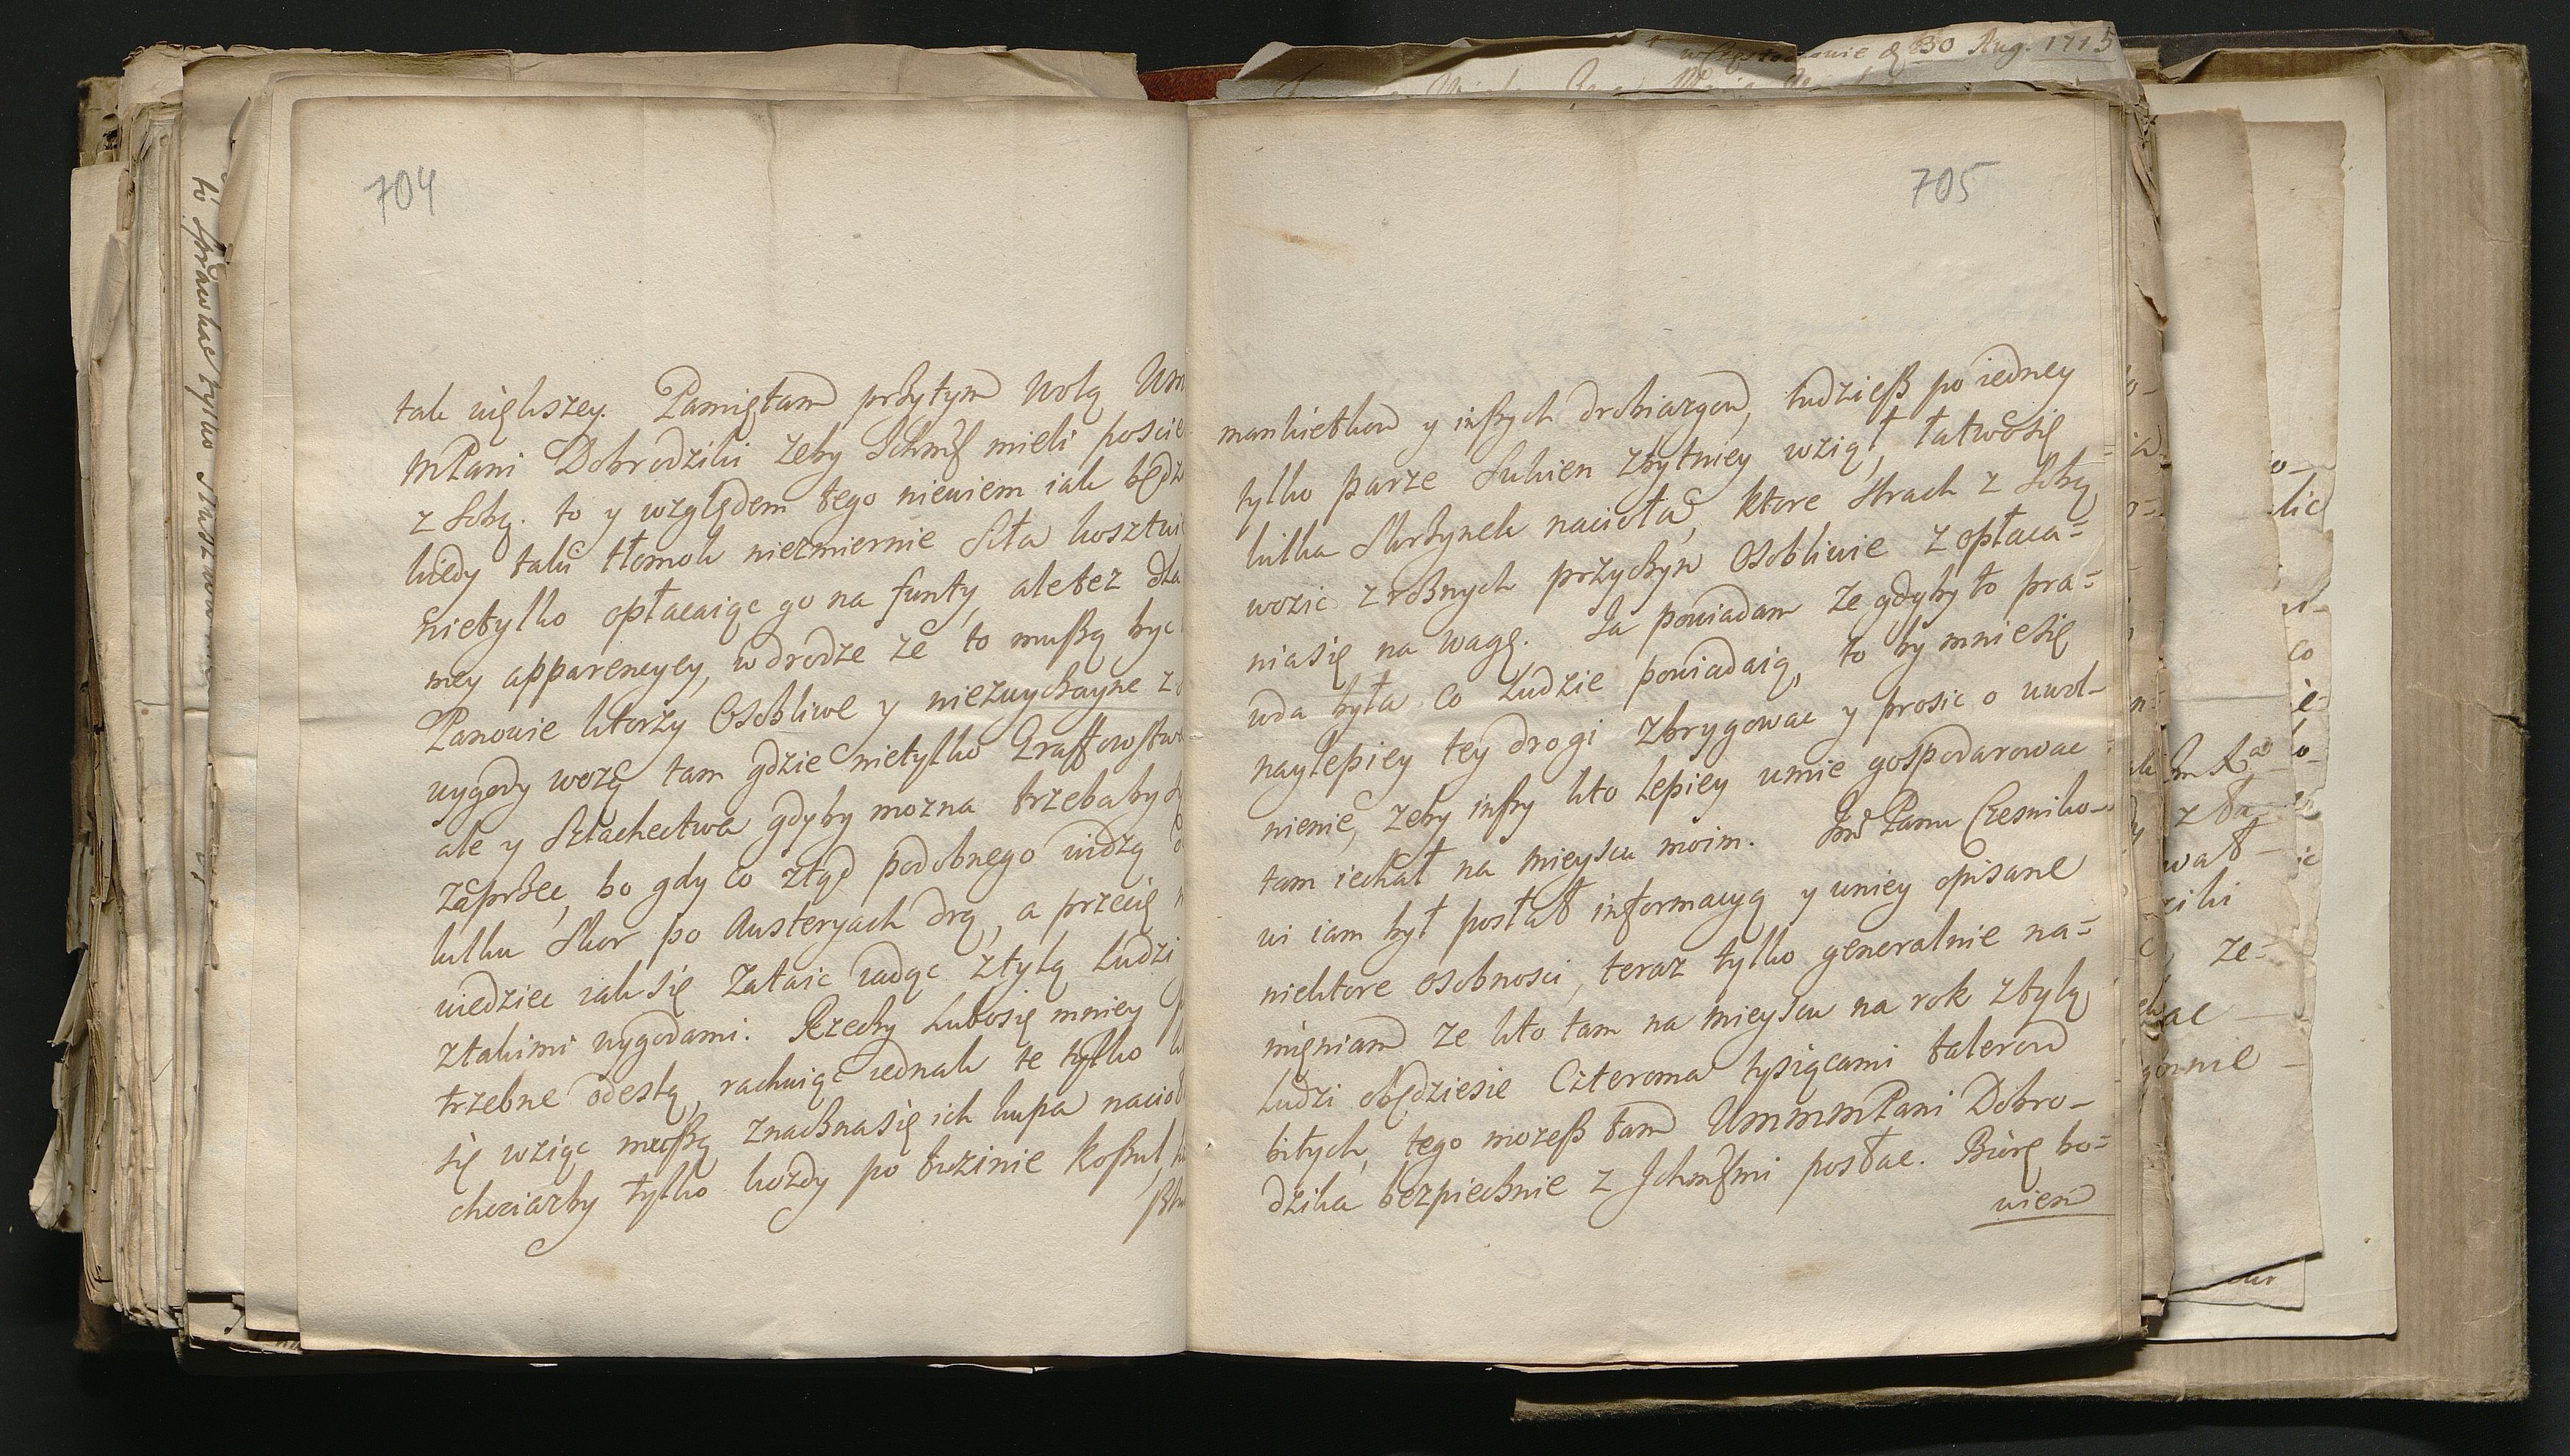 704
tak większey. Pamiętam przytym wolą Um
MPani Dobrodziki zeby Ichmść mieli poscie
z sobą. to y względem tego niewiem iak będz
kiedy taki tłomok niezmiernie siła kosztui
nietylko opłacaiąc go na funty, aletez dla
mey apparencyey, w drodze ze to mußzą byc
Panowie ktorzy osobliwe y niezwyczayne z
wygody wozą tam gdzie nietylko Graffowstwa
ale y szlachectwa gdyby mozna trzebaby s
zaprzec, bo gdy co ztąd podobnego widzą
kilku skor po Austeryach drą, a przecię n
wiedziec iak się zataic iadąc ztylą ludzi
ztakimi wygodami. Rzeczy lubosię mniey p
trzebne odeslą, rachuiąc iednak te tylko k
się wziąc mußzą znacznasię ich kupa nacio
chociazby tylko kozdy po tuzinie koßul,
705
mankietkow y inßych drobiazgow, tudzieß po iedney
tylko parze sukien zbytniey wziął, łatwosię
kilka skrzynek nacioła, ktore strach z sobą
wozic z roznych przyczyn osobliwie z opłaca=
niasię na wagę. Ja powiadam ze gdyby to pra=
wda była co ludzie powiadaią, to by mniesię
naylepiey tey drogi zbrygowac y prosic o uwol-
nienie, zeby inßy kto lepiey umie gospodarowac
tam iechał na mieyscu moim. Jmć Panu Czesniko-
wi iam był posłał informacyą y wniey opisane
niektore osobnosci, teraz tylko generalnie na=
mięniam ze kto tam na mieyscu na rok ztylą
ludzi obędziesie czteroma tysiącami talerow
bitych, tego mozeß tam UmmmPani Dobro-
dzika bezpiecznie z Ichmściami posłac. Biorę bo=
wiem
30 Aug. 1715